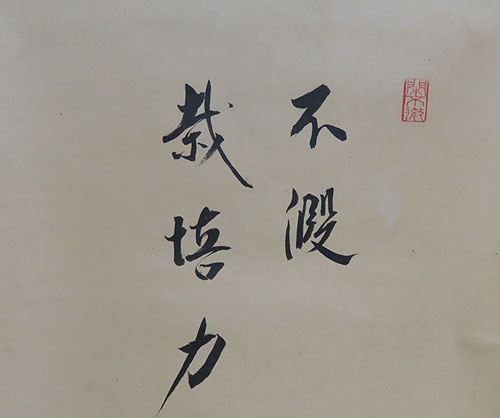 不假
栽培力